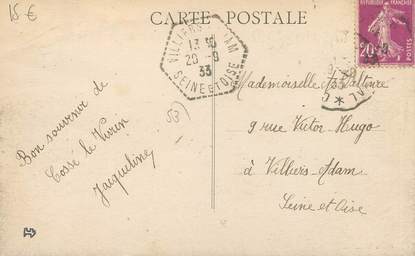 15 €
CARTE POSTALE
VILLIERS ADAM
13 30
20 -9
33
SEINE ET OISE
20c
POSTES
53
Bon souvenir de
Cossé le Vivien
Jacqueline
Mademoiselle
9 rue Victor Hugo
à Villiers-Adam
Seine et Oise